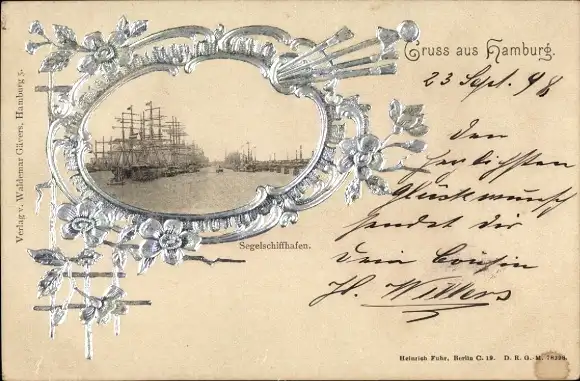 Gruss aus Hamburg.
23 Sept. 98
Den
herzlichsten
Glückwunsch
sendet dir
Dein Cousin
H. Willers
Segelschiffhafen.
Verlag v. Waldemar Gävers, Hamburg 5.
Heinrich Fuhr, Berlin C. 19. D. R. G.-M.